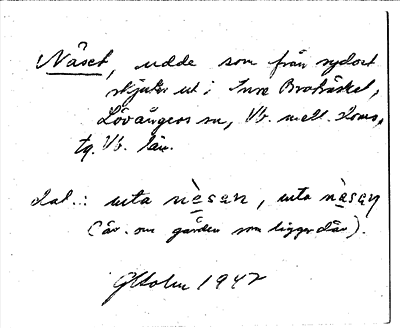 Näset, udde som från sydost
skjuter ut i Inre Broträsket,
Lövångers sn, Vb. mell. doms.
tg. Vb. län.
Lal..: uta nèsan, uta nàsan
(äv. om gården som ligger där).
1947